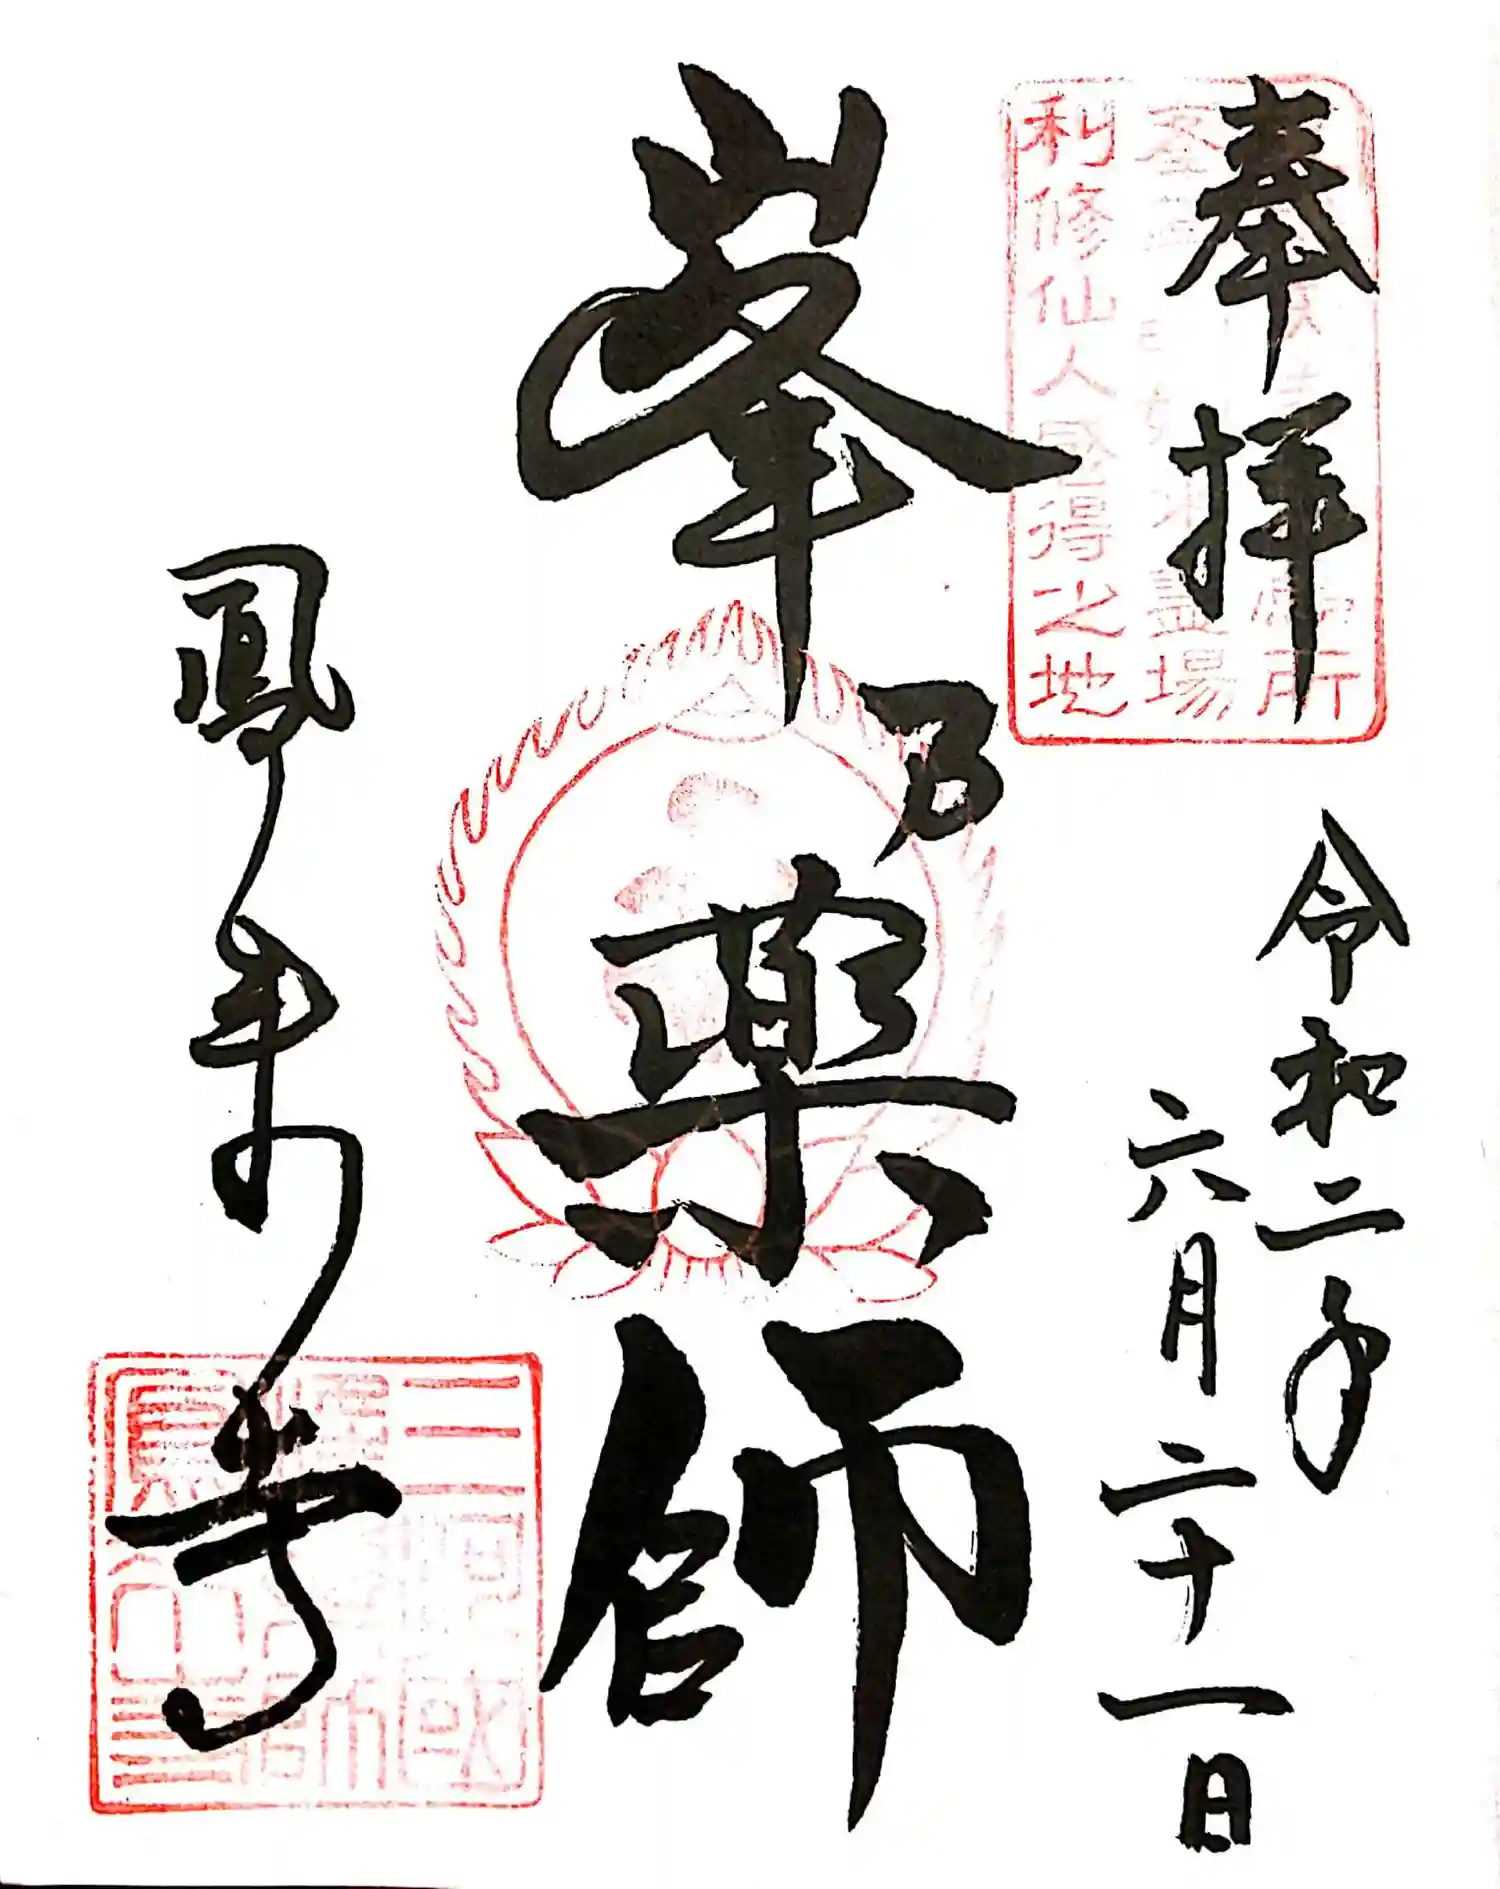 奉拝
利修仙人感得之地
令和二年
六月二十一日
峯乃薬師
鳳来寺